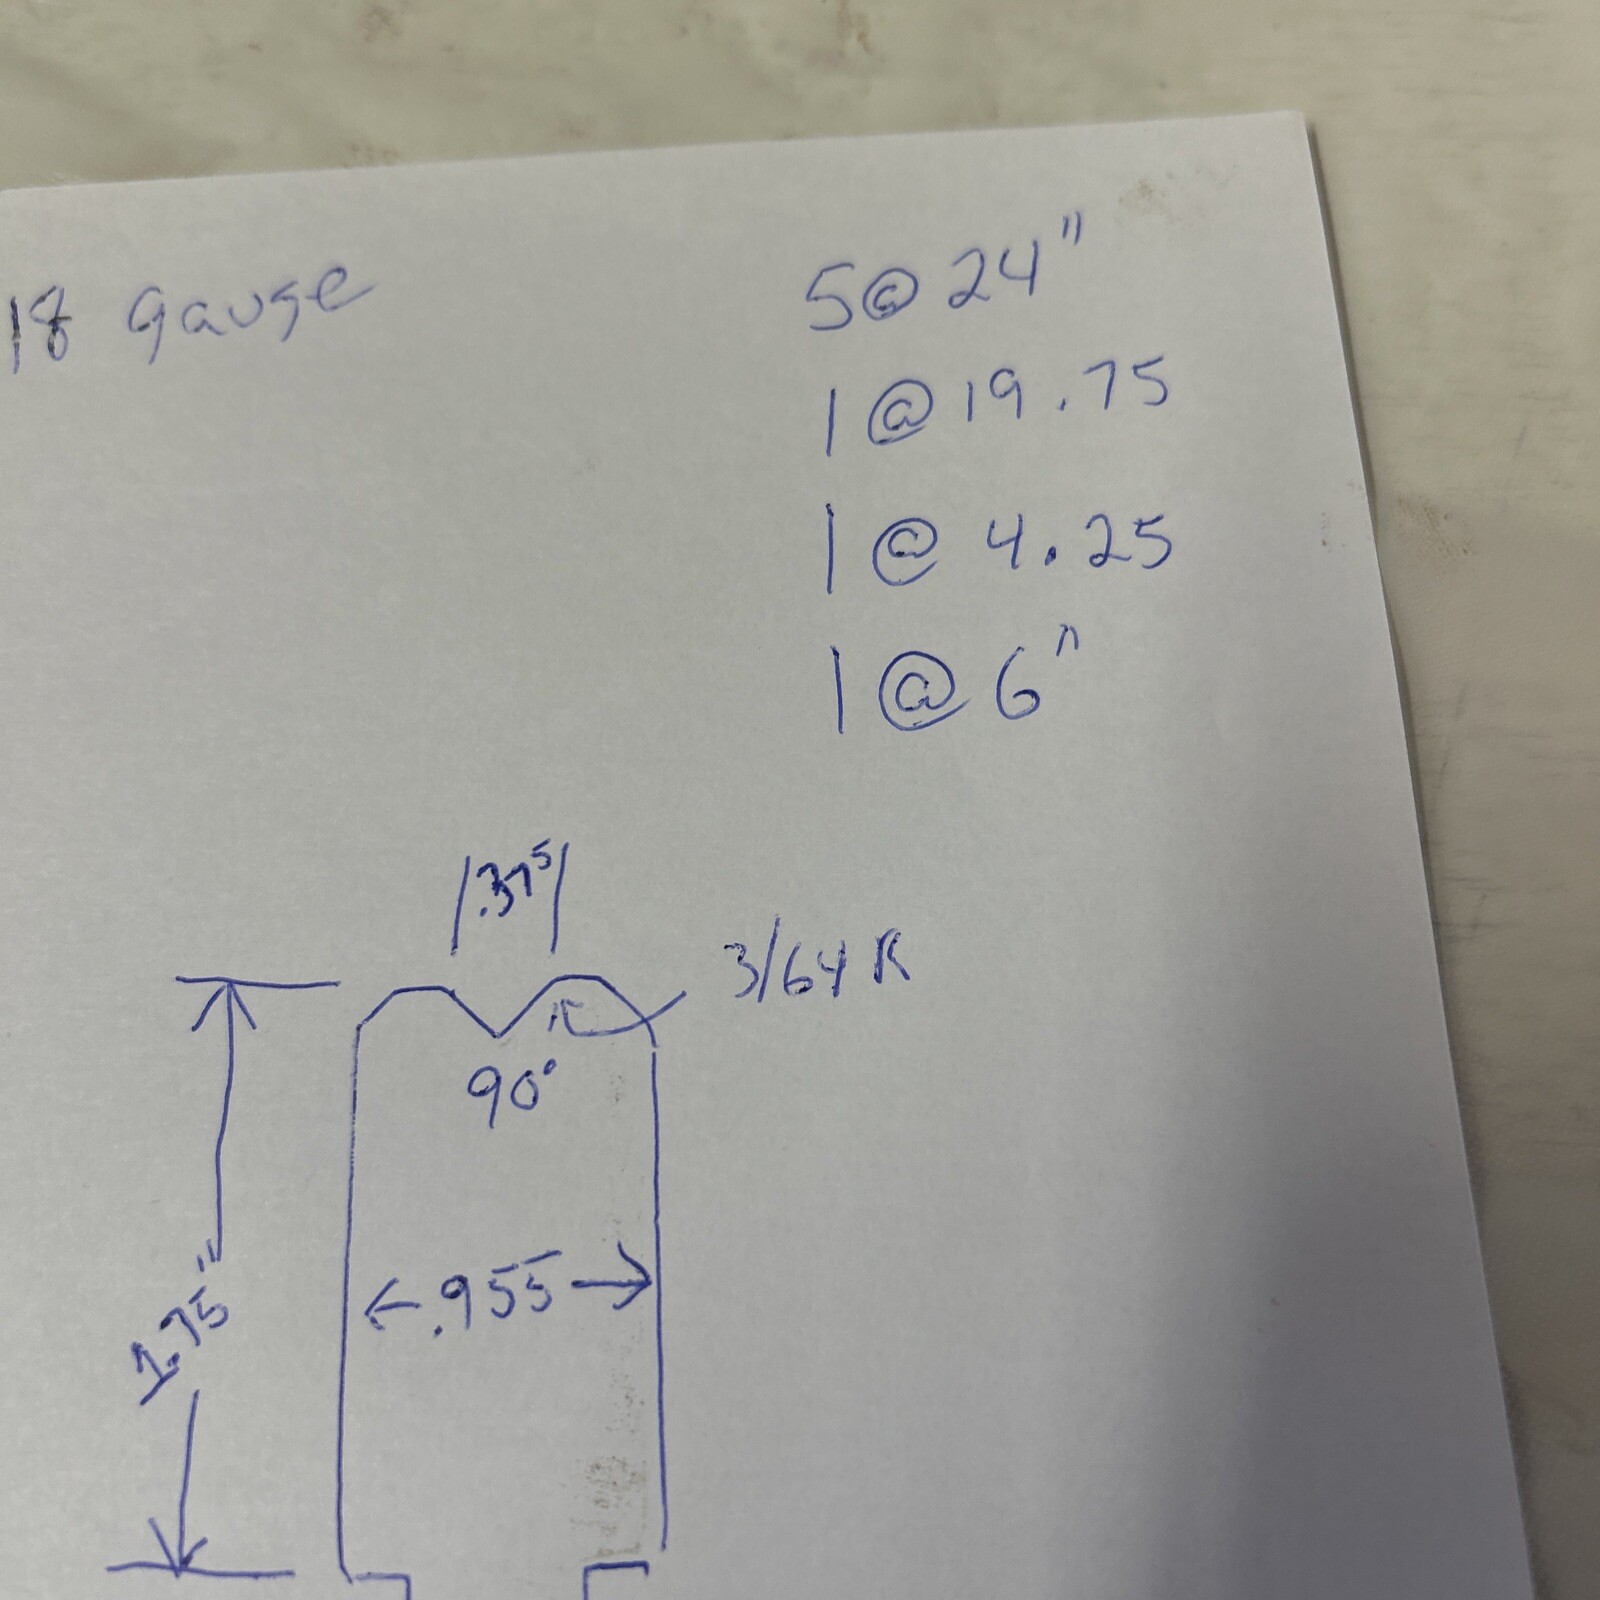 18 gauge
5@ 24"
1 @ 19.75
1 @ 4.25
1 @ 6"
.375
3/64 R
90°
.955
1.75"